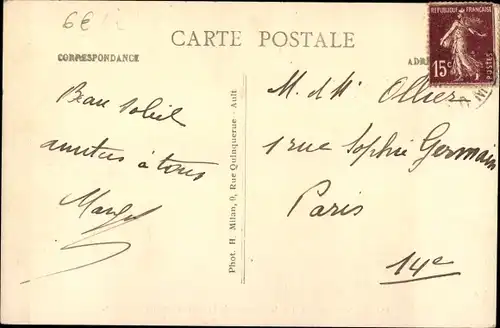 6€
CARTE POSTALE
CORRESPONDANCE
ADR
RÉPUBLIQUE FRANÇAISE
15c
POSTES
Beau soleil
amitiés à tous
M. & Mme Ollier
1 rue Sophie Germain
Paris
14e
Phot. H. Milan, 9, Rue Quinquerue - Ault